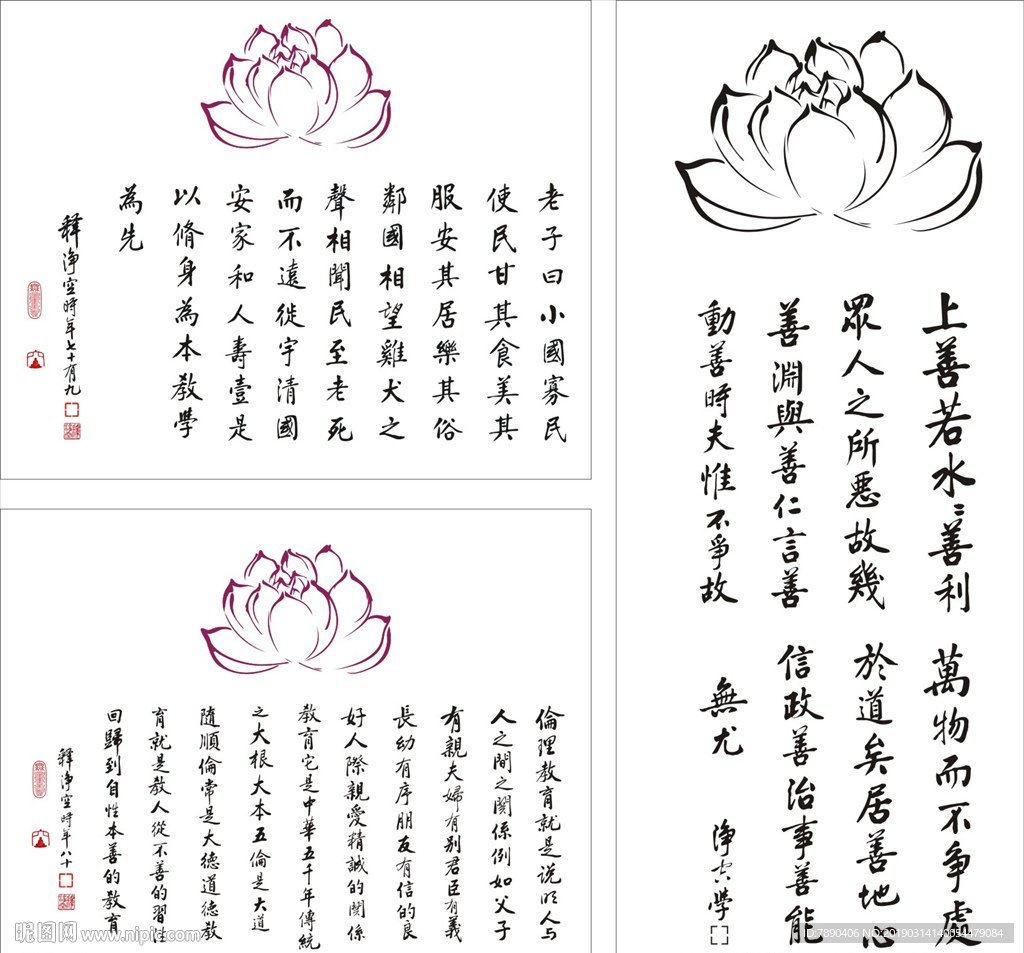 老子曰小國寡民
使民甘其食美其
服安其居樂其俗
鄰國相望雞犬之
聲相聞民至老死
而不遠徙宇清國
安家和人壽壹是
以脩身為本教學
為先
釋淨空時年七十有九
上善若水〻善利萬物而不爭處
眾人之所惡故幾於道矣居善地心
善淵與善仁言善信政善治事善能
動善時夫惟不爭故無尤
淨空學
倫理教育就是说明人与
人之間之関係例如父子
有親夫婦有别君臣有義
長幼有序朋友有信的良
好人際親愛精誠的関係
教育它是中華五千年傳統
之大根大本五倫是大道
隨順倫常是大德道德教
育就是教人從不善的習性
回歸到自性本善的教育
釋淨空時年八十
昵图网 www.nipic.com
ID:7890406 NO:20190314140054479084